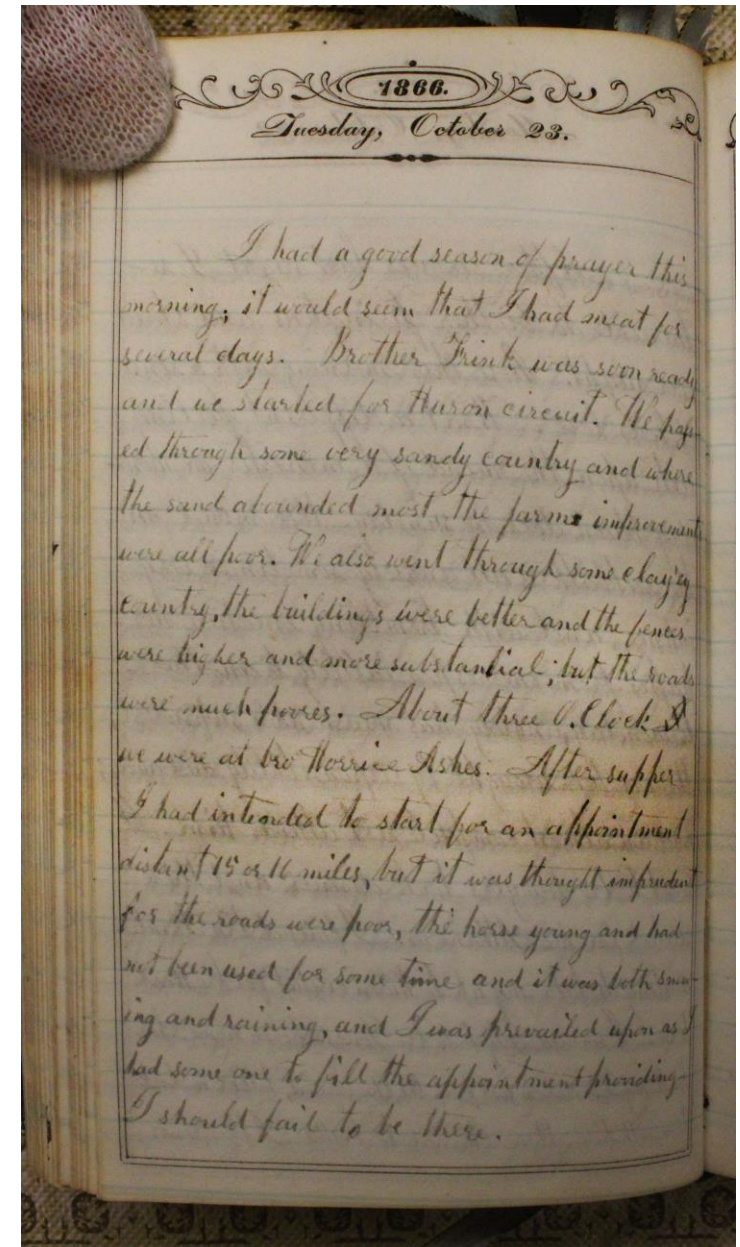 1866.
Tuesday, October 23.
I had a good season of prayer this
morning; it would seem that I had meat for
several days. Brother Frink was soon ready
and we started for Huron circuit. We pass-
ed through some very sandy country and where
the sand abounded most the farms improvements
were all poor. We also went through some clay'ey
country, the buildings were better and the fences
were higher and more substantial; but the roads
were much poorer. About three O.Clock
we were at bro Horrice Ashes. After supper
I had intended to start for an appointment
distant 15 or 16 miles, but it was thought imprudent
for the roads were poor, the horse young and had
not been used for some time and it was both snow-
ing and raining, and I was prevailed upon as I
had some one to fill the appointment providing
I should fail to be there.